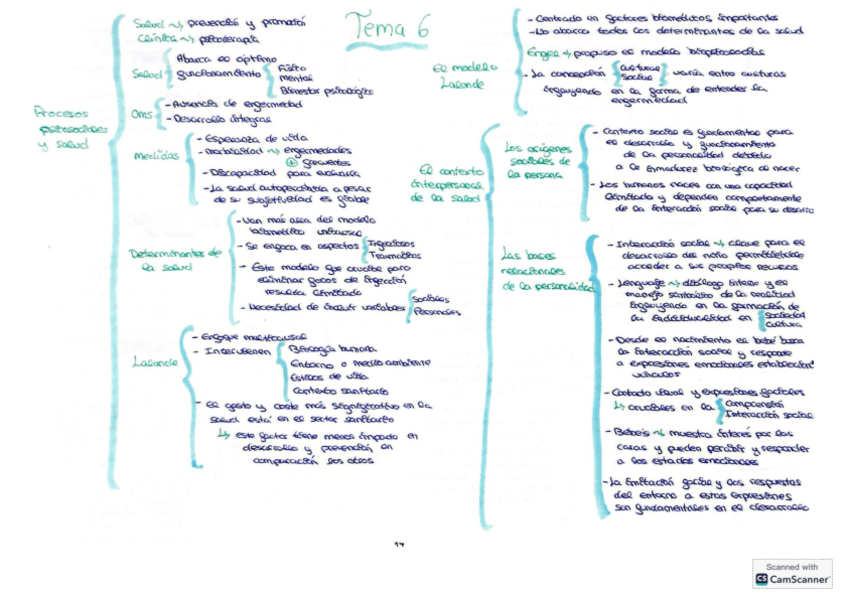 Tema 6
Procesos
psicosociales
y salud
Salud → prevención y promoción
Clínica → psicoterapia
Salud
Abarca el óptimo
funcionamiento
Físico
mental
Bienestar psicológico
OMS
- Ausencia de enfermedad
- Desarrollo integral
Medidas
- Esperanza de vida
- morbilidad → enfermedades
+ frecuentes
- Discapacidad para evaluarla
- La salud autopercibida a pesar
de su subjetividad es fiable
Determinantes de
la salud
- Van más allá del modelo
biomédico unicausal
- Se enfoca en aspectos
Infecciosos
Traumáticos
- Este modelo fue crucial para
eliminar focos de infección
resulta limitado
- Necesidad de incluir variables
Sociales
Personales
Lalonde
- Enfoque multicausal
- Intervienen
Biología humana
Entorno o medio ambiente
Estilos de vida
Contexto sanitario
- El gasto y coste más significativo en la
salud está en el sector sanitario
↳ este factor tiene menos impacto en
desarrollo y prevención en
comparación los otros
El modelo
Lalonde
- Centrado en factores biomédicos importantes
- No abarca todos los determinantes de la salud
Engel → propuso el modelo biopsicosocial
- La concepción
cultural
Social
varía entre culturas
influyendo en la forma de entender la
enfermedad
El contexto
interpersonal
de la salud
Los orígenes
sociales de
la persona
- Contexto social es fundamental para
el desarrollo y funcionamiento
de la personalidad debido
a la inmadurez biológica al nacer
- Los humanos nacen con una capacidad
limitada y dependen completamente
de la interacción social para su
Las bases
relacionales
de la personalidad
- Interacción social → clave para el
desarrollo del niño permitiéndole
acceder a sus propios recursos
- Lenguaje → diálogo interno y el
manejo simbólico de la realidad
influyendo en la formación de
la individualidad en
Sociedad
Cultura
- Desde el nacimiento el bebé busca
la interacción social y responde
a expresiones emocionales estableciendo
vínculos
- Contacto visual y expresiones faciales
↳ cruciales en la
Comprensión
Interacción social
- Bebés → muestra interés por las
caras y pueden percibir y responder
a los estados emocionales
- La imitación facial y las respuestas
del entorno a estas expresiones
son fundamentales en el desarrollo
Scanned with
CS CamScanner